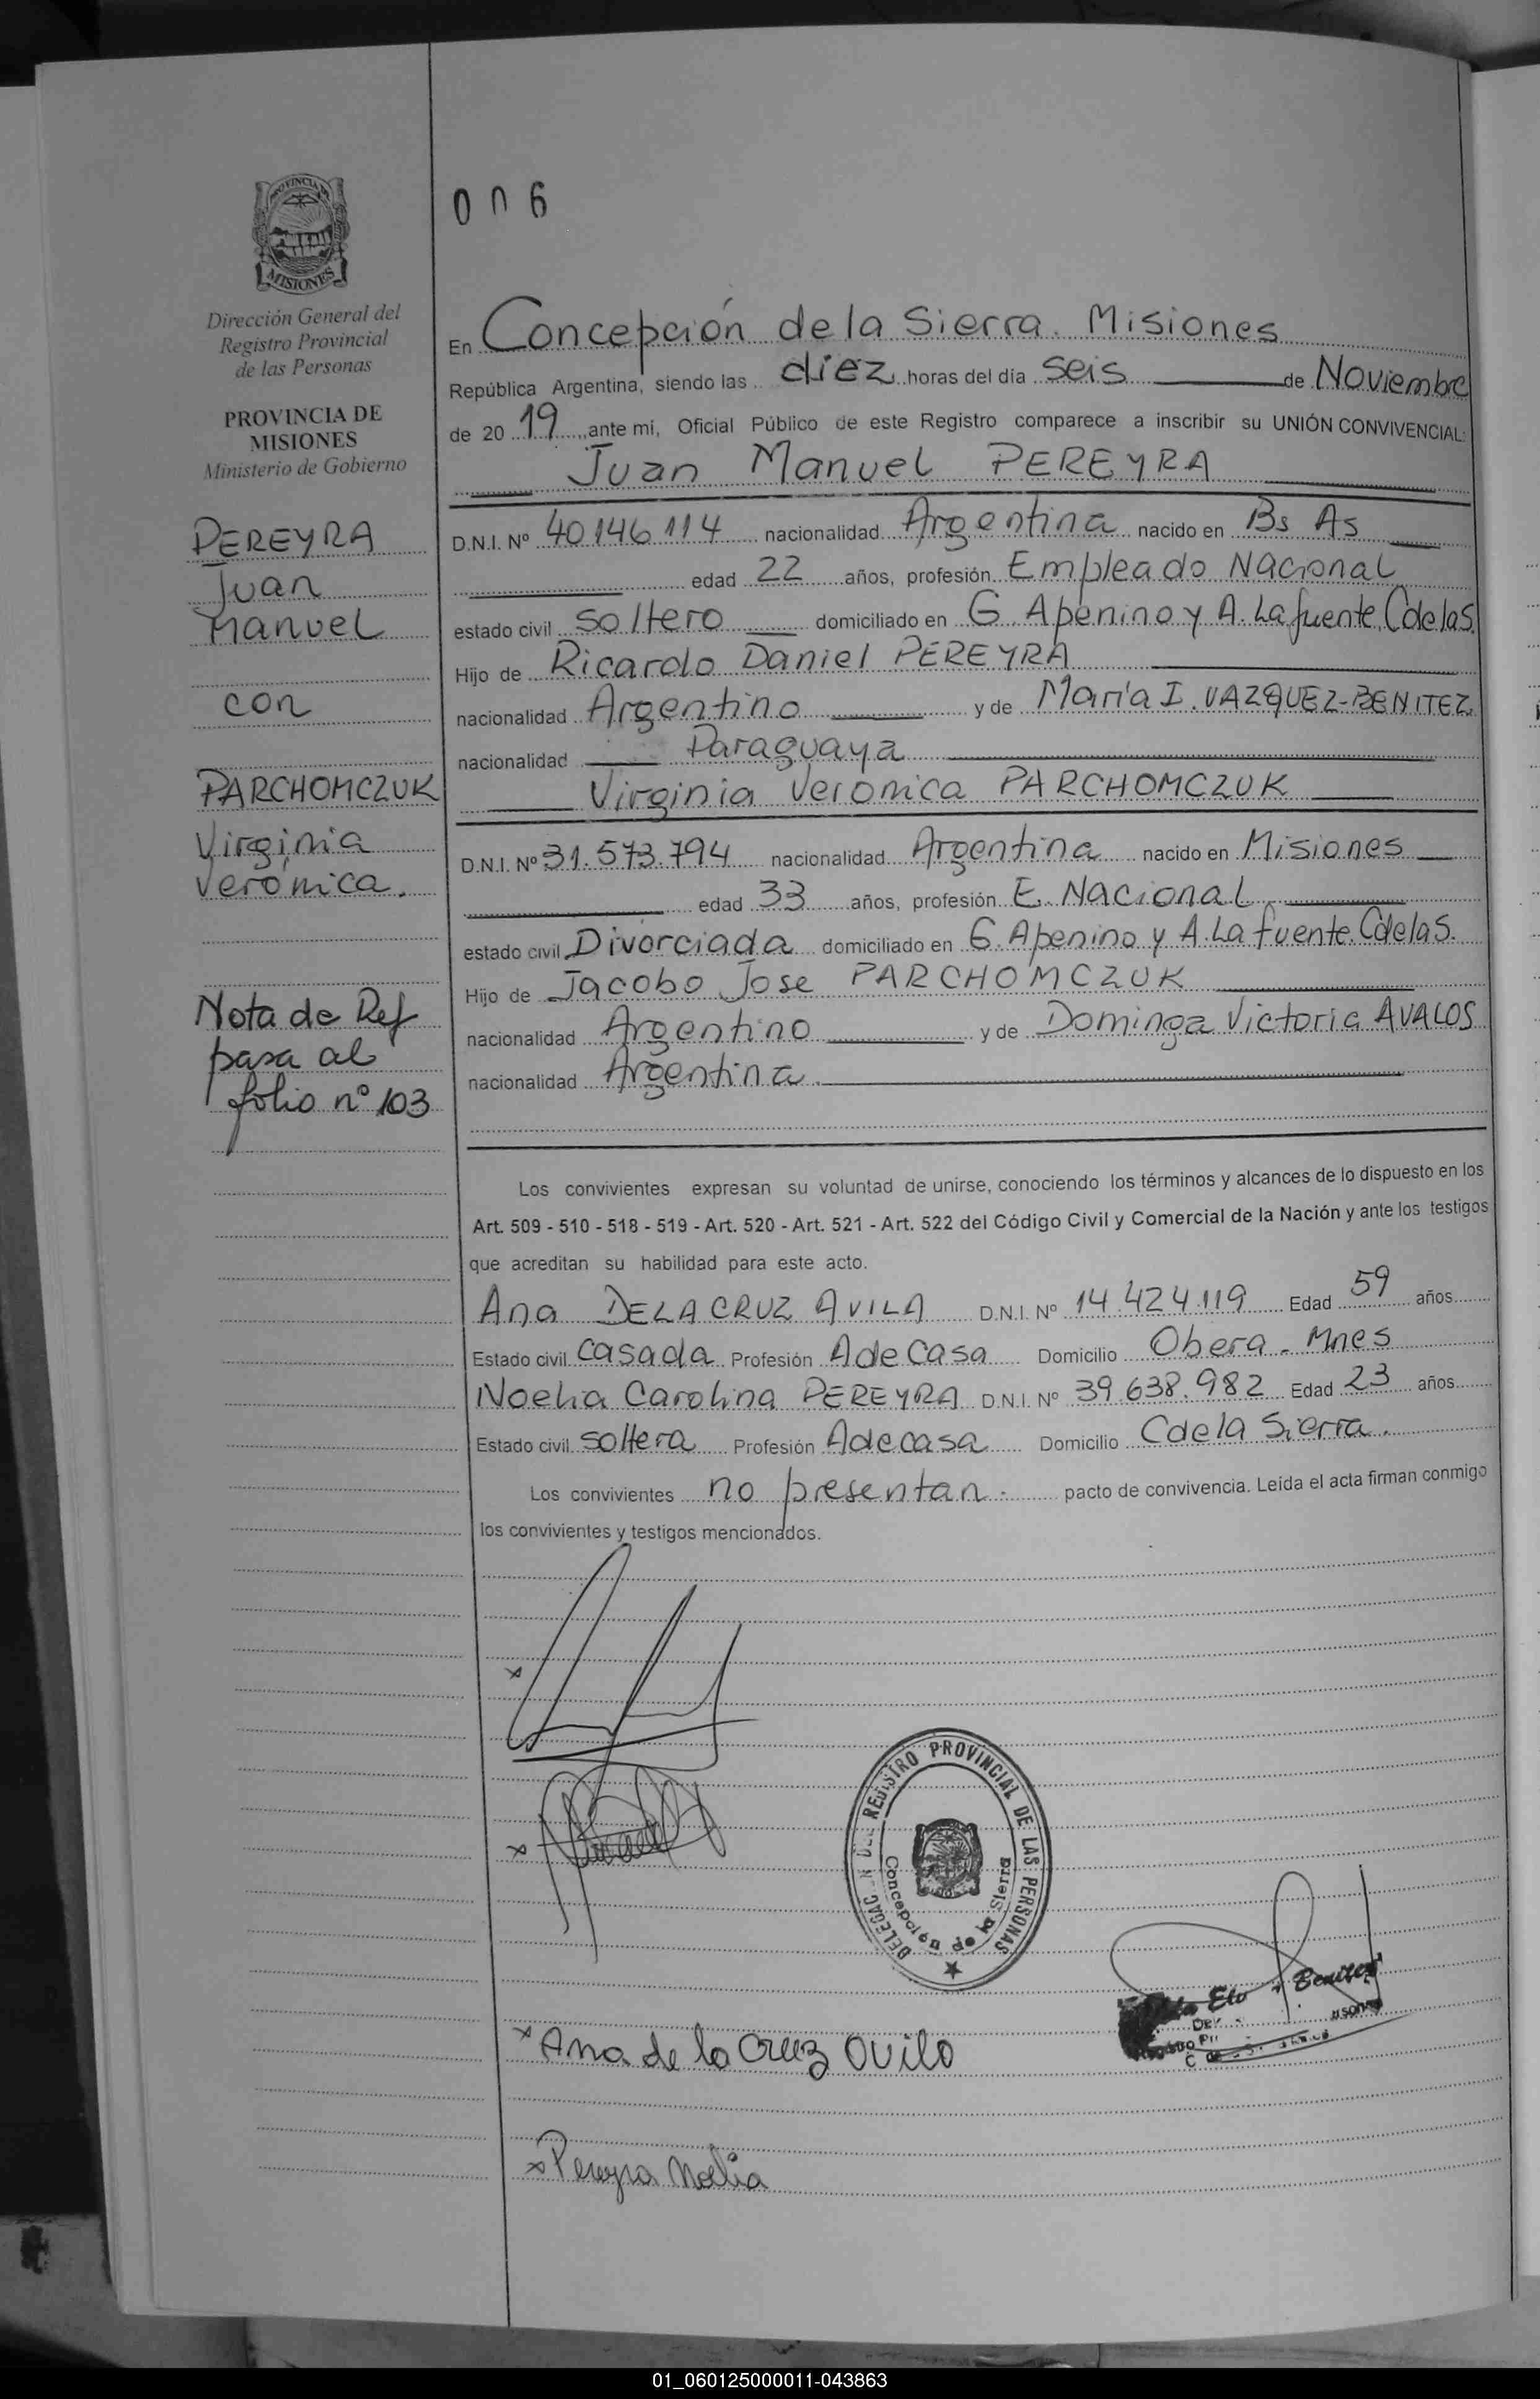 PROVINCIA DE
MISIONES
Dirección General del
Registro Provincial
de las Personas
PROVINCIA DE
MISIONES
Ministerio de Gobierno
PEREYRA
Juan
Manuel
con
PARCHOMCZUK
Virginia
Verónica.
Nota de Ref
pasa al
folio nº 103
006
En Concepción de la Sierra. Misiones
República Argentina, siendo las diez horas del día seis de Noviembre
de 2019, ante mi, Oficial Público de este Registro comparece a inscribir su UNIÓN CONVIVENCIAL:
Juan Manuel PEREYRA
D.N.I. Nº 40146114 nacionalidad Argentina nacido en Bs As
edad 22 años, profesión Empleado Nacional
estado civil soltero domiciliado en G. Apenino y A. Lafuente. CdelaS.
Hijo de Ricardo Daniel PEREYRA
nacionalidad Argentino y de María I. VAZQUEZ-BENITEZ
nacionalidad Paraguaya
Virginia Veronica PARCHOMCZUK
D.N.I. Nº 31.573.794 nacionalidad Argentina nacido en Misiones
edad 33 años, profesión E. Nacional
estado civil Divorciada domiciliado en G. Apenino y A. La fuente. CdelaS.
Hijo de Jacobo Jose PARCHOMCZUK
nacionalidad Argentino y de Dominga Victoria AVALOS
nacionalidad Argentina.
Los convivientes expresan su voluntad de unirse, conociendo los términos y alcances de lo dispuesto en los
Art. 509 - 510 - 518 - 519 - Art. 520 - Art. 521 - Art. 522 del Código Civil y Comercial de la Nación y ante los testigos
que acreditan su habilidad para este acto.
Ana DELACRUZ AVILA D.N.I. Nº 14.424.119 Edad 59 años
Estado civil casada Profesión Ade Casa Domicilio Obera - Mnes
Noelia Carolina PEREYRA D.N.I. Nº 39.638.982 Edad 23 años
Estado civil soltera Profesión Adecasa Domicilio Cdela Sierra.
Los convivientes no presentan. pacto de convivencia. Leída el acta firman conmigo
los convivientes y testigos mencionados.
REGISTRO PROVINCIAL DE LAS PERSONAS
Concepción de la Sierra
Benitez
Ana de la Cruz Ovilo
Pereyra Noelia
01_060125000011-043863